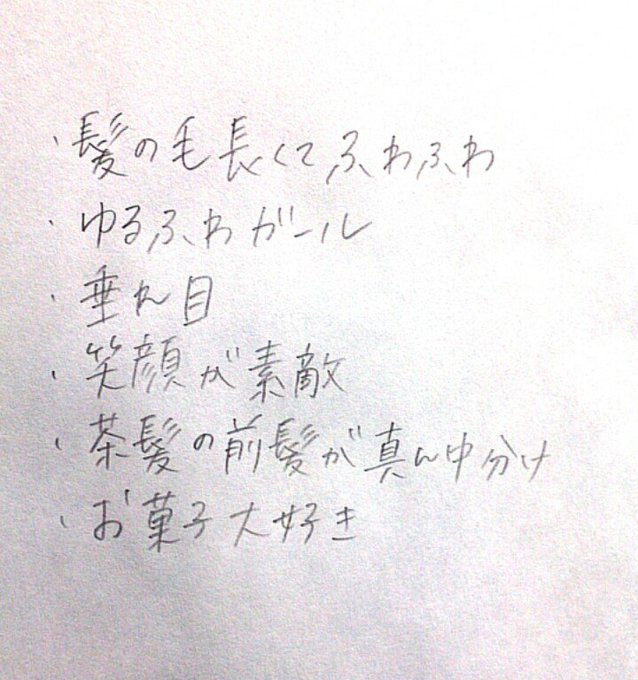 ・髪の毛長くてふわふわ
・ゆるふわガール
・垂れ目
・笑顔が素敵
・茶髪の前髪が真ん中分け
・お菓子大好き